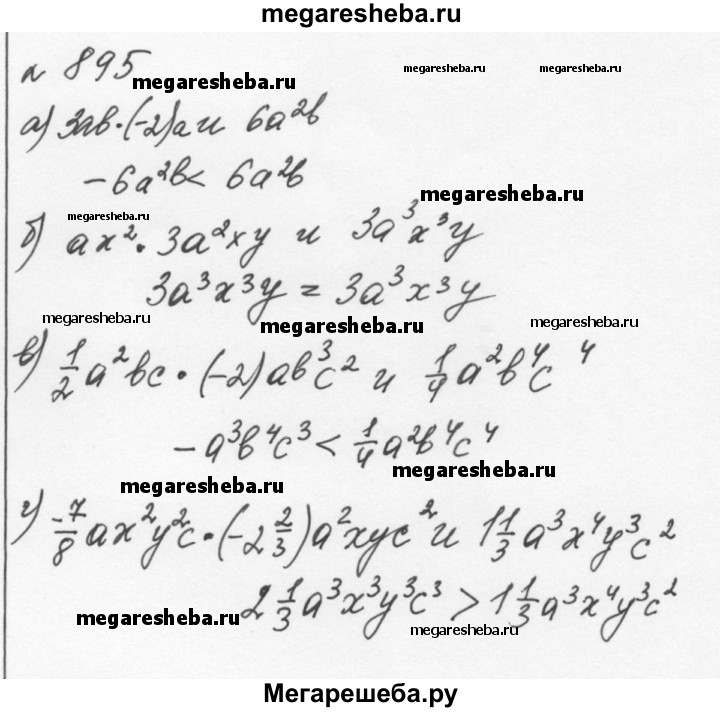 megaresheba.ru
№ 895
megaresheba.ru megaresheba.ru megaresheba.ru
а) 3ab·(-2)a и 6a²b
-6a²b < 6a²b
megaresheba.ru
megaresheba.ru
б) ax²·3a²xy и 3a³x³y
3a³x³y = 3a³x³y
megaresheba.ru megaresheba.ru megaresheba.ru
в) 1/2 a²bc·(-2)ab³c² и 1/4 a²b⁴c⁴
-a³b⁴c³ < 1/4 a²b⁴c⁴
megaresheba.ru
megaresheba.ru
г) -7/8 ax²y²c·(-2 2/3)a²xyc² и 1 1/3 a³x⁴y³c²
2 1/3 a³x³y³c³ > 1 1/3 a³x⁴y³c²
megaresheba.ru megaresheba.ru
Мегарешеба.ру